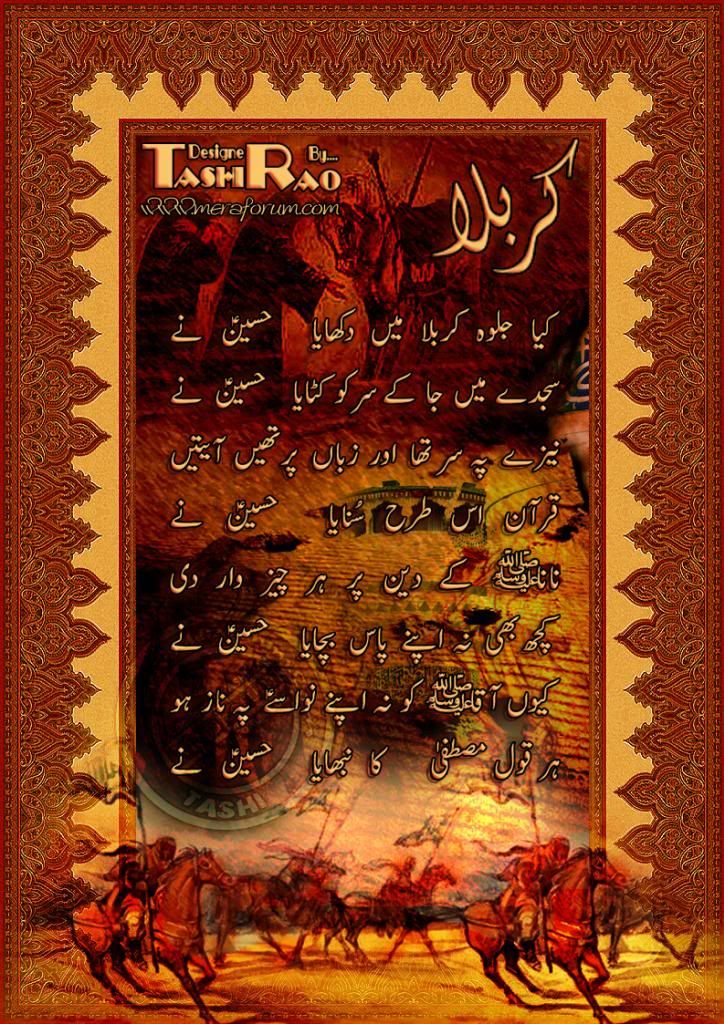 Designe By....
TASHI RAO
www.meraforum.com
کربلا
کیا جلوہ کربلا میں دکھایا حسینؑ نے
سجدے میں جا کے سر کو کٹایا حسینؑ نے
نیزے پہ سر تھا اور زباں پر تھیں آیتیں
قرآن اس طرح سُنایا حسینؑ نے
ناناﷺ کے دین پر ہر چیز وار دی
کچھ بھی نہ اپنے پاس بچایا حسینؑ نے
کیوں آقاﷺ کو نہ اپنے نواسےؑ پہ ناز ہو
ہر قول مصطفیٰ کا نبھایا حسینؑ نے
TASHI